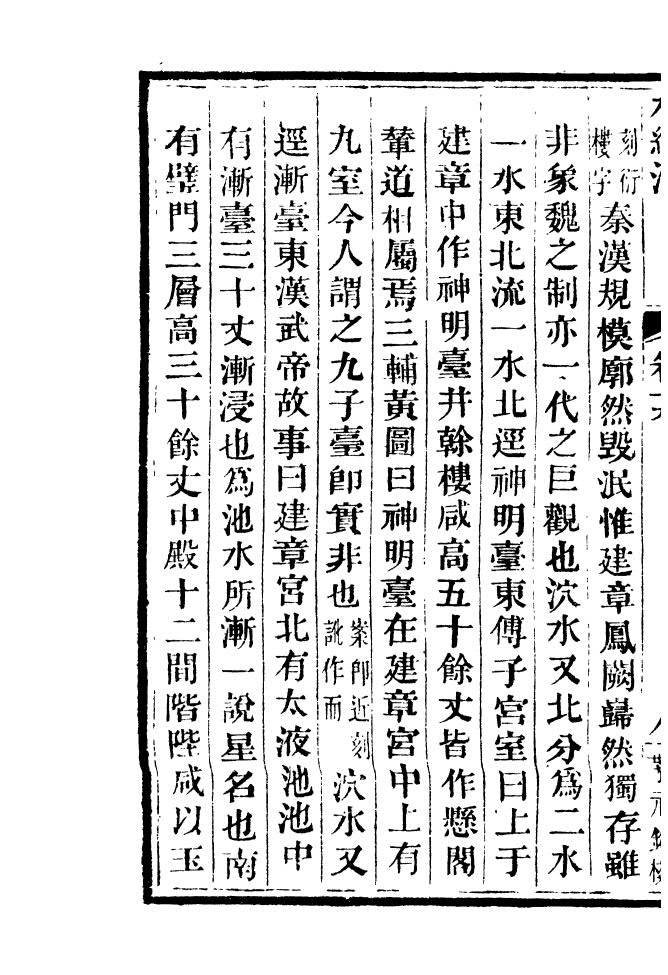 水經注 卷十九
刻衍樓字秦漢規模廓然毀泯惟建章鳳闕巋然獨存雖
非象魏之制亦一代之巨觀也泬水又北分爲二水
一水東北流一水北逕神明臺東傅子宮室曰上于
建章中作神明臺井榦樓咸高五十餘丈皆作懸閣
輦道相屬焉三輔黃圖曰神明臺在建章宮中上有
九室今人謂之九子臺卽實非也案卽近刻訛作而泬水又
逕漸臺東漢武帝故事曰建章宮北有太液池池中
有漸臺三十丈漸浸也爲池水所漸一說星名也南
有璧門三層高三十餘丈中殿十二間階陛咸以玉